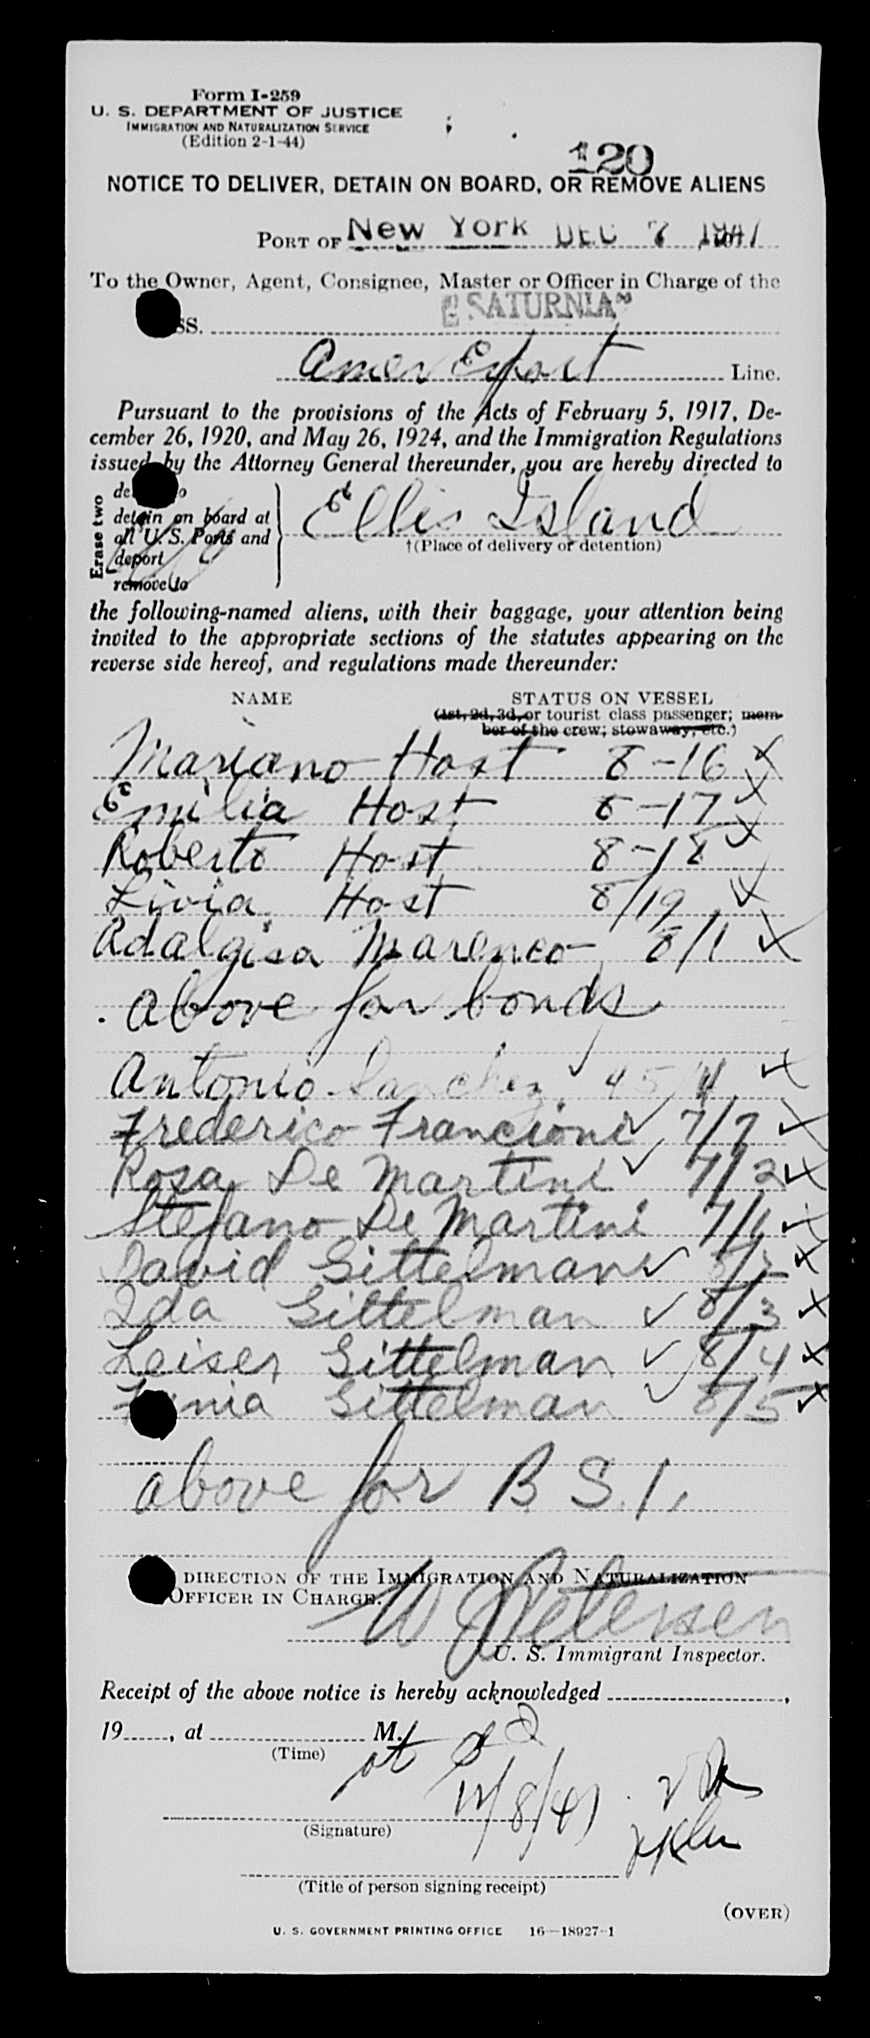 Form I-259
U. S. DEPARTMENT OF JUSTICE
IMMIGRATION AND NATURALIZATION SERVICE
(Edition 2-1-44)
120
NOTICE TO DELIVER, DETAIN ON BOARD, OR REMOVE ALIENS
PORT OF New York DEC 7 1947
To the Owner, Agent, Consignee, Master or Officer in Charge of the
SS. "SATURNIA"
Amer Export Line.
Pursuant to the provisions of the Acts of February 5, 1917, De-
cember 26, 1920, and May 26, 1924, and the Immigration Regulations
issued by the Attorney General thereunder, you are hereby directed to
Erase two
detain on board at
all U. S. Ports and
deport
remove to
Ellis Island
†(Place of delivery or detention)
the following-named aliens, with their baggage, your attention being
invited to the appropriate sections of the statutes appearing on the
reverse side hereof, and regulations made thereunder:
NAME STATUS ON VESSEL
(1st, 2d, 3d, or tourist class passenger; mem-
ber of the crew; stowaway, etc.)
Mariano Host 8-16
Emilia Host 8-17
Roberto Host 8-18
Livia Host 8/19
Adalgisa Marenco 8/1
above for bonds
Antonio Sanchez 45/4
Frederico Francioni 7/7
Rosa De Martini 7/2
Stefano De Martini 7/1
David Gittelman 8/2
Ida Gittelman 8/3
Leiser Gittelman 8/4
Gittelman 8/5
above for B. S. I.
DIRECTION OF THE IMMIGRATION AND NATURALIZATION
OFFICER IN CHARGE.
W J Petersen
U. S. Immigrant Inspector.
Receipt of the above notice is hereby acknowledged
19 , at M.
(Time)
12/8/47
(Signature)
(Title of person signing receipt)
(OVER)
U. S. GOVERNMENT PRINTING OFFICE 16—18927-1